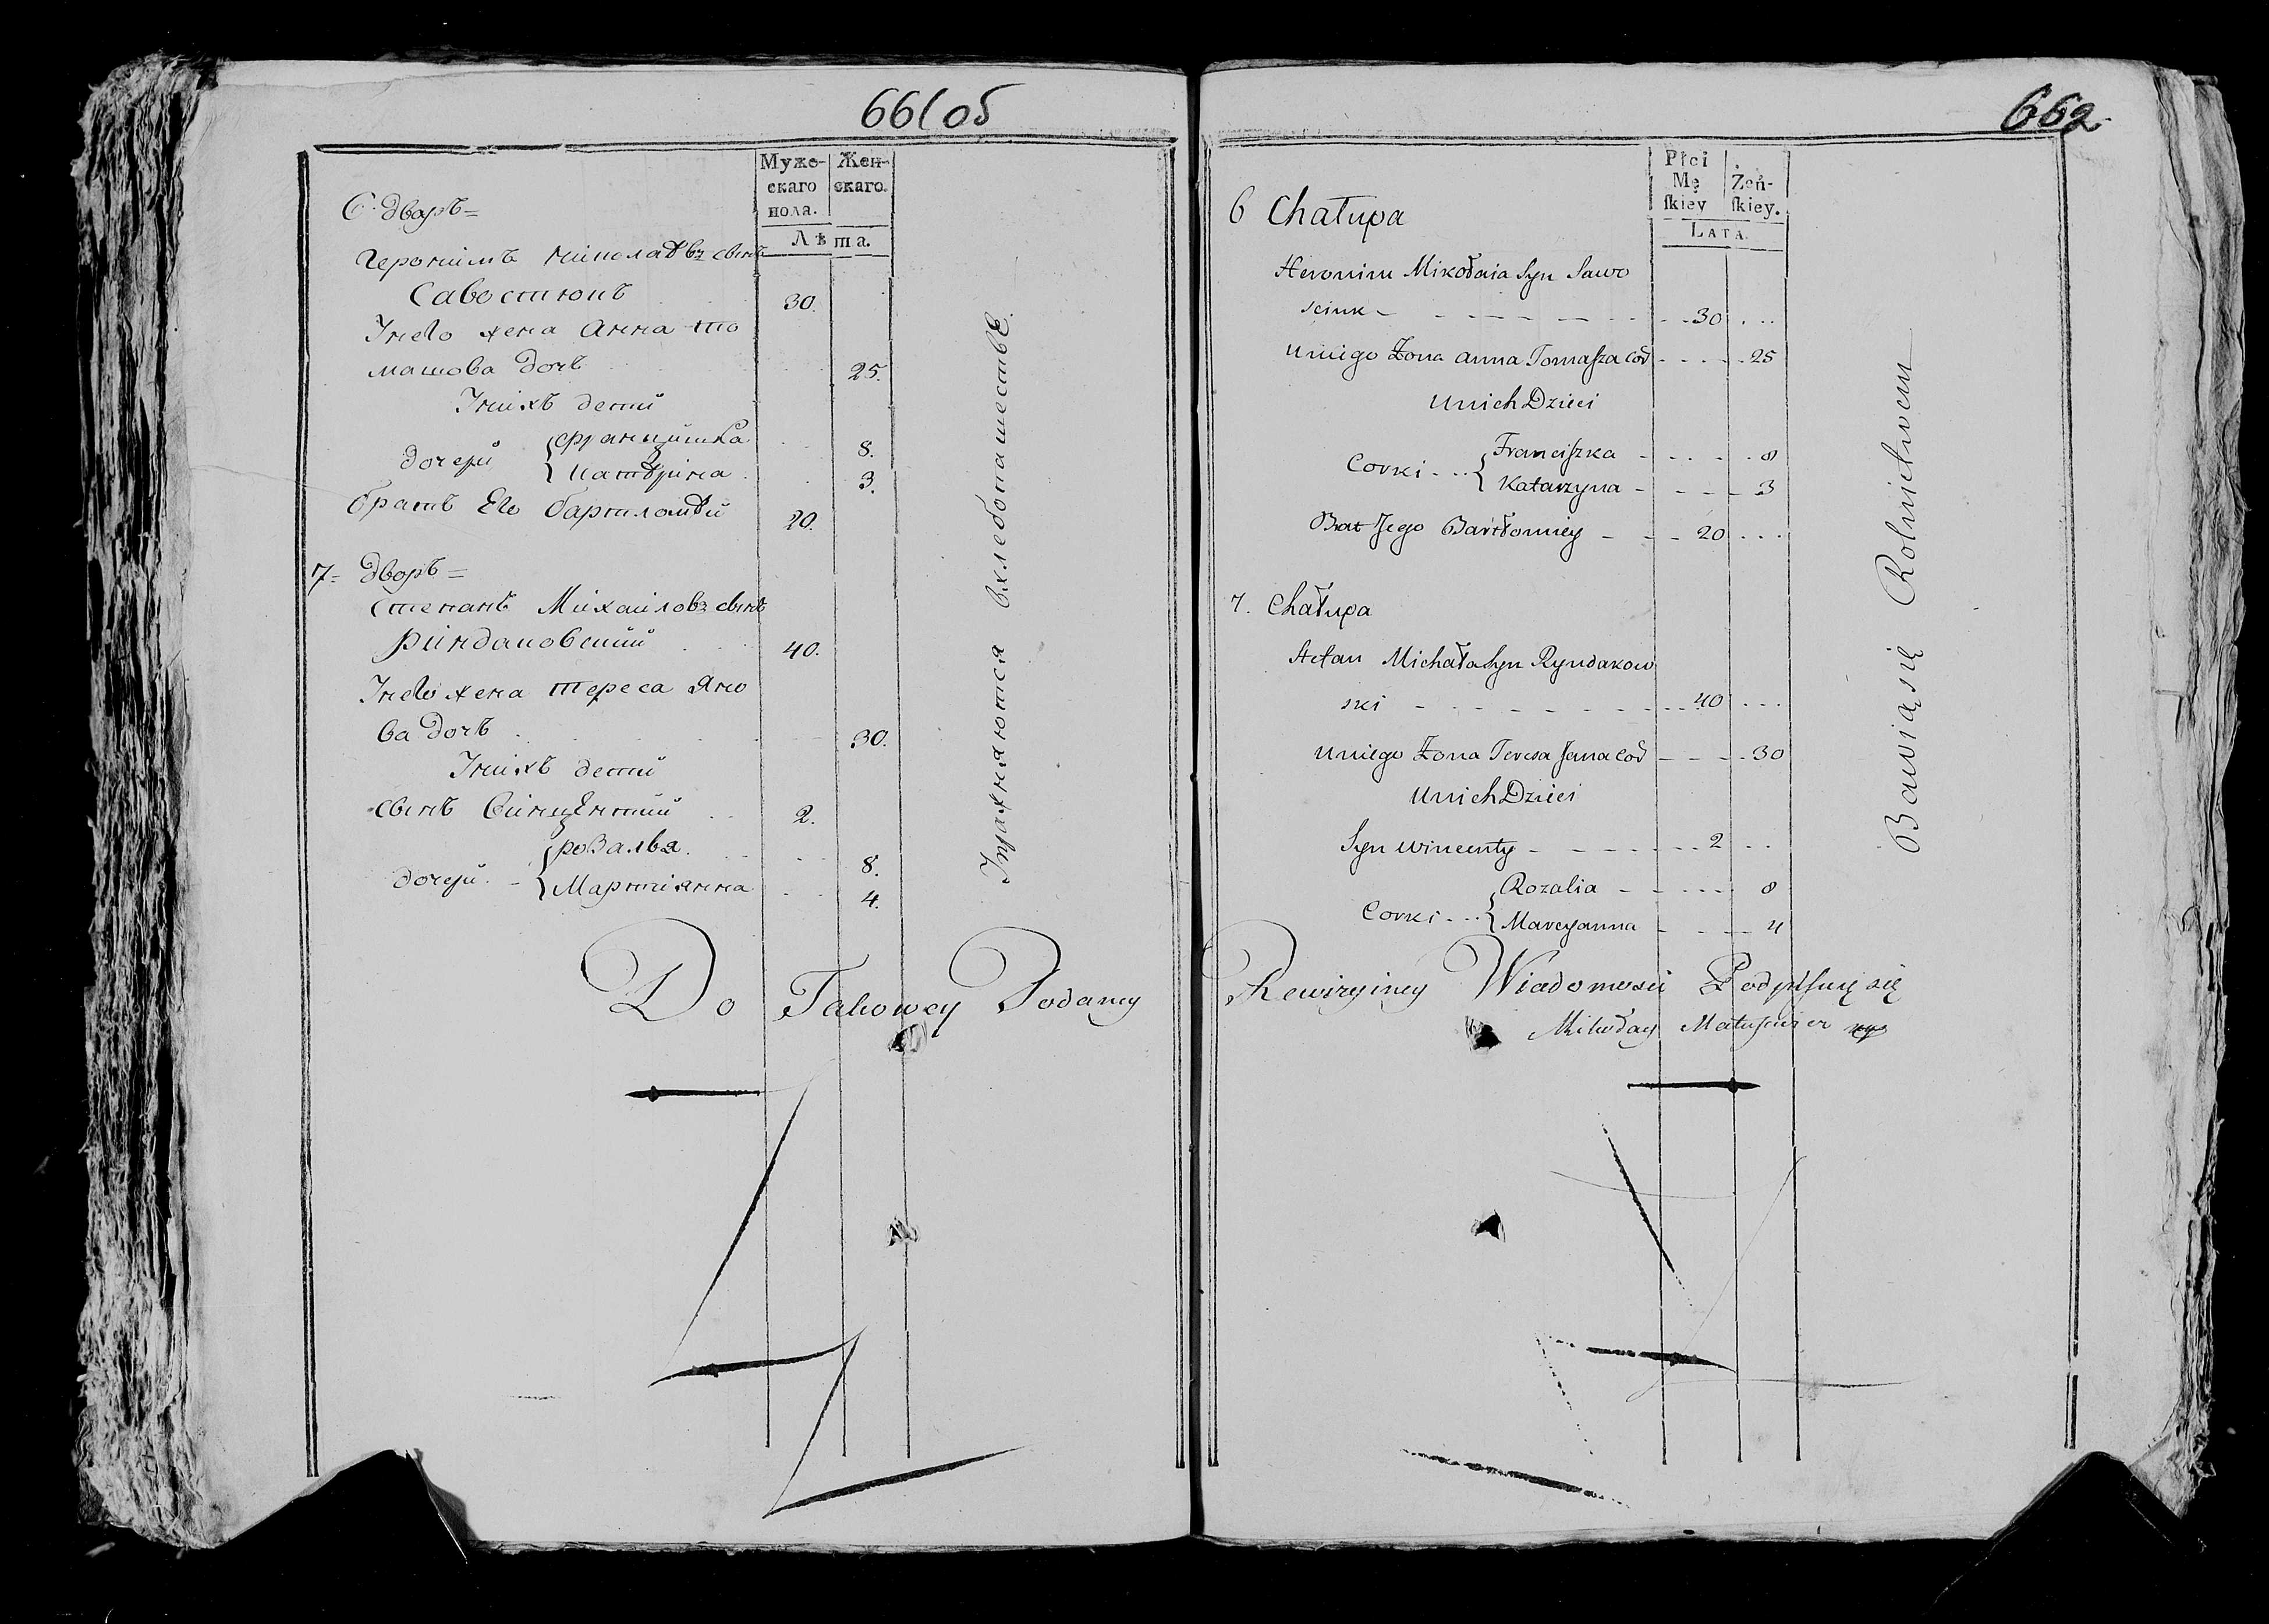 661 об
Муже-
скаго
пола.
Жен-
скаго.
Лѣта.
6 дворъ=
Героніимъ Миколаѣвъ сынъ
Савостюнъ 30.
Унего жена Анна то
машова дочь 25.
Унихъ дети
дочери Францишка 8.
Катѣрина 3.
братъ Его бартломѣй 20.
7= дворъ=
Степанъ Михаиловъ сынъ
Риндаковский 40.
Унего жена Тереса Яно
ва дочь 30.
Унихъ дети
сынъ Винцентий 2.
дочери розалья 8.
Марциянна 4.
Упражняются вхлебопашествѣ.
662
Płci
Mę
ſkiey
Żeń-
ſkiey.
LATA.
6 Chałupa
Heronim Mikołaia Syn Sawo
sciuk 30
Uniego Żona anna Tomaſza Cor 25
Unich Dzieci
Corki Franciſzka 8
Katarzyna 3
Brat Jego Bartłomiey 20
7. Chałupa
Stefan Michała Syn Ryndakow
ski 40
Uniego Żona Teresa Jana Cor 30
Unich Dzieci
Syn Wincenty 2
Corki Rozalia 8
Marcyanna 4
Bawią się Rolnictwem
Do Takowey Podaney Rewizyiney Wiadomosci Podpiſuię się
Mikołay